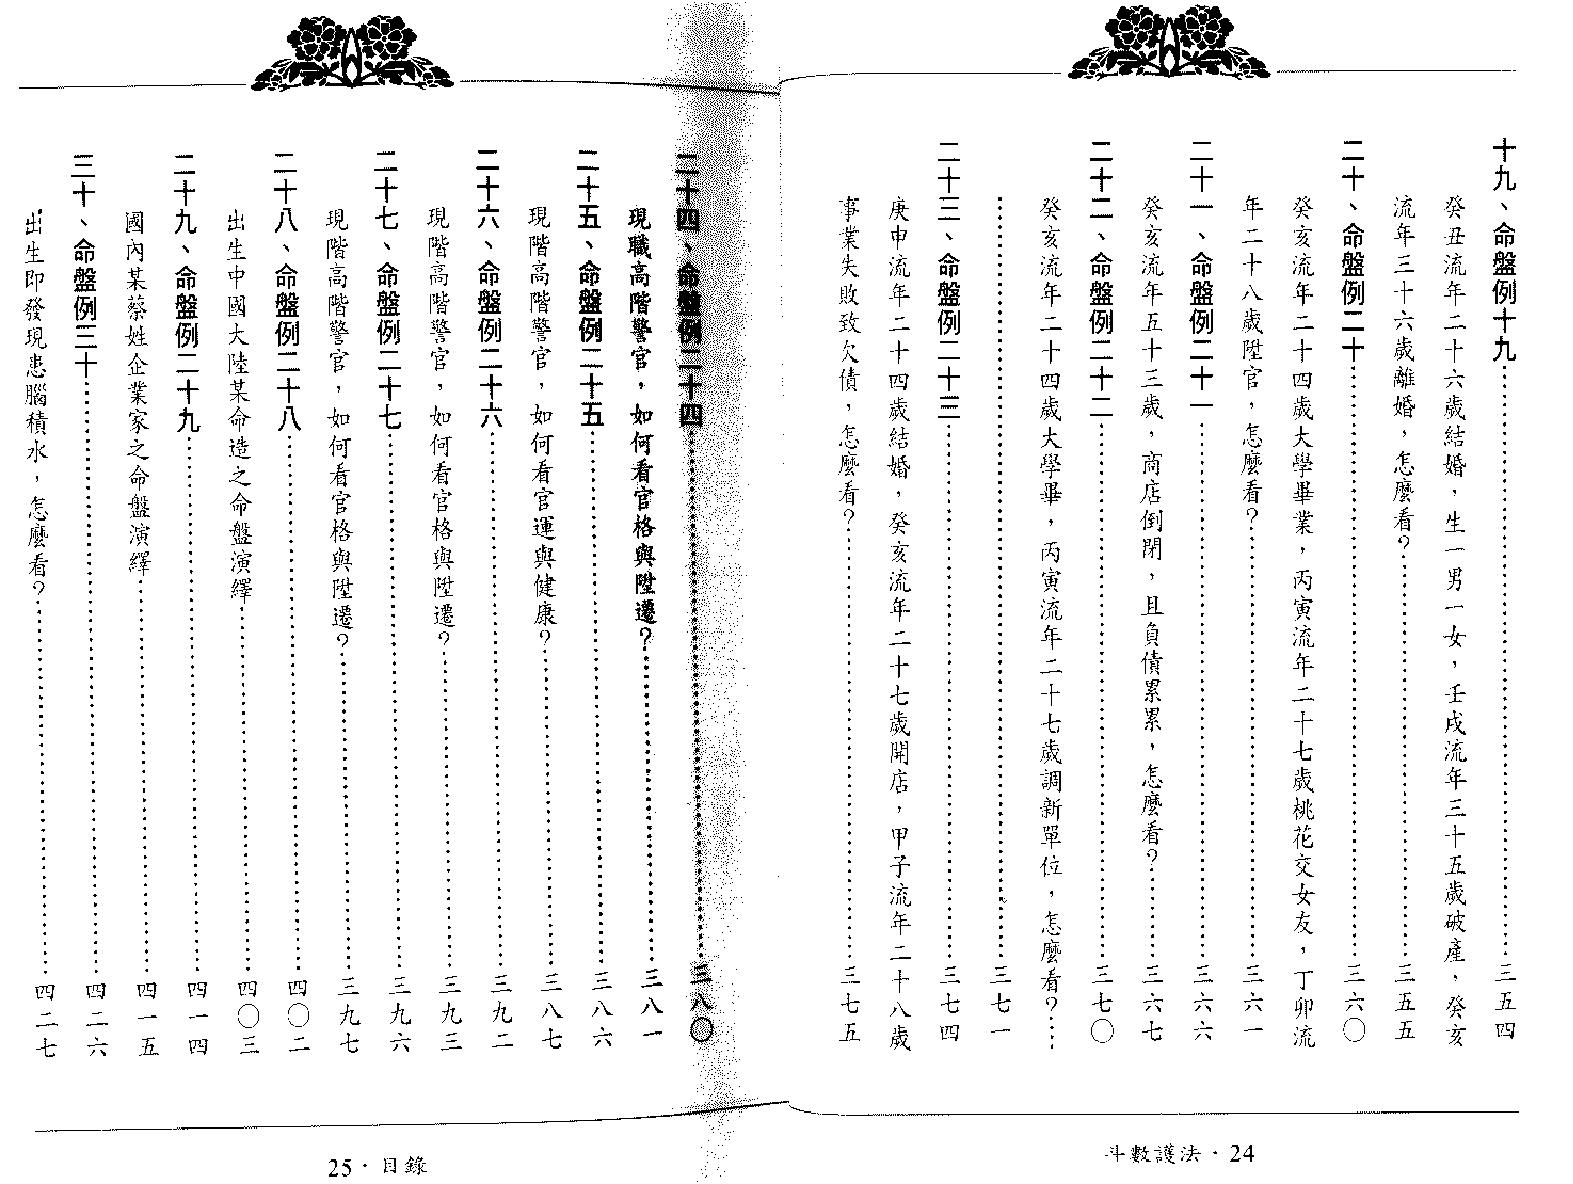 十九、命盤例十九……三五四
癸丑流年二十六歲結婚，生一男一女，壬戌流年三十五歲破產，癸亥
流年三十六歲離婚，怎麼看？……三五五
二十、命盤例二十……三六〇
癸亥流年二十四歲大學畢業，丙寅流年二十七歲桃花交女友，丁卯流
年二十八歲陞官，怎麼看？……三六一
二十一、命盤例二十一……三六六
癸亥流年五十三歲，商店倒閉，且負債累累，怎麼看？……三六七
二十二、命盤例二十二……三七〇
癸亥流年二十四歲大學畢，丙寅流年二十七歲調新單位，怎麼看？…
……三七一
二十三、命盤例二十三……三七四
庚申流年二十四歲結婚，癸亥流年二十七歲開店，甲子流年二十八歲
事業失敗致欠債，怎麼看？……三七五
斗數護法・24
二十四、命盤例二十四……三八〇
現職高階警官，如何看官格與陞遷？……三八一
二十五、命盤例二十五……三八六
現階高階警官，如何看官運與健康？……三八七
二十六、命盤例二十六……三九二
現階高階警官，如何看官格與陞遷？……三九三
二十七、命盤例二十七……三九六
現階高階警官，如何看官格與陞遷？……三九七
二十八、命盤例二十八……四〇二
出生中國大陸某命造之命盤演繹……四〇三
二十九、命盤例二十九……四一四
國內某蔡姓企業家之命盤演繹……四一五
三十、命盤例三十……四二六
出生即發現患腦積水，怎麼看？……四二七
25・目錄